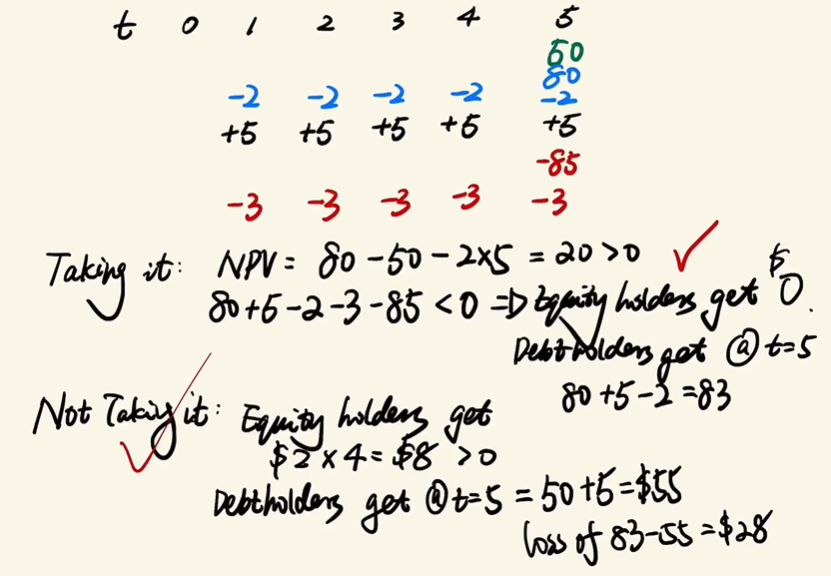 t 0 1 2 3 4 5
50
80
-2 -2 -2 -2 -2
+5 +5 +5 +5 +5
-85
-3 -3 -3 -3 -3
Taking it: NPV = 80 - 50 - 2×5 = 20 > 0
80+5-2-3-85 < 0 ⇒ Equity holders get $0.
Debtholders get @ t=5
80+5-2=83
Not Taking it: Equity holders get
$2 × 4 = $8 > 0
Debtholders get @t=5 = 50+5=$55
loss of 83-55=$28